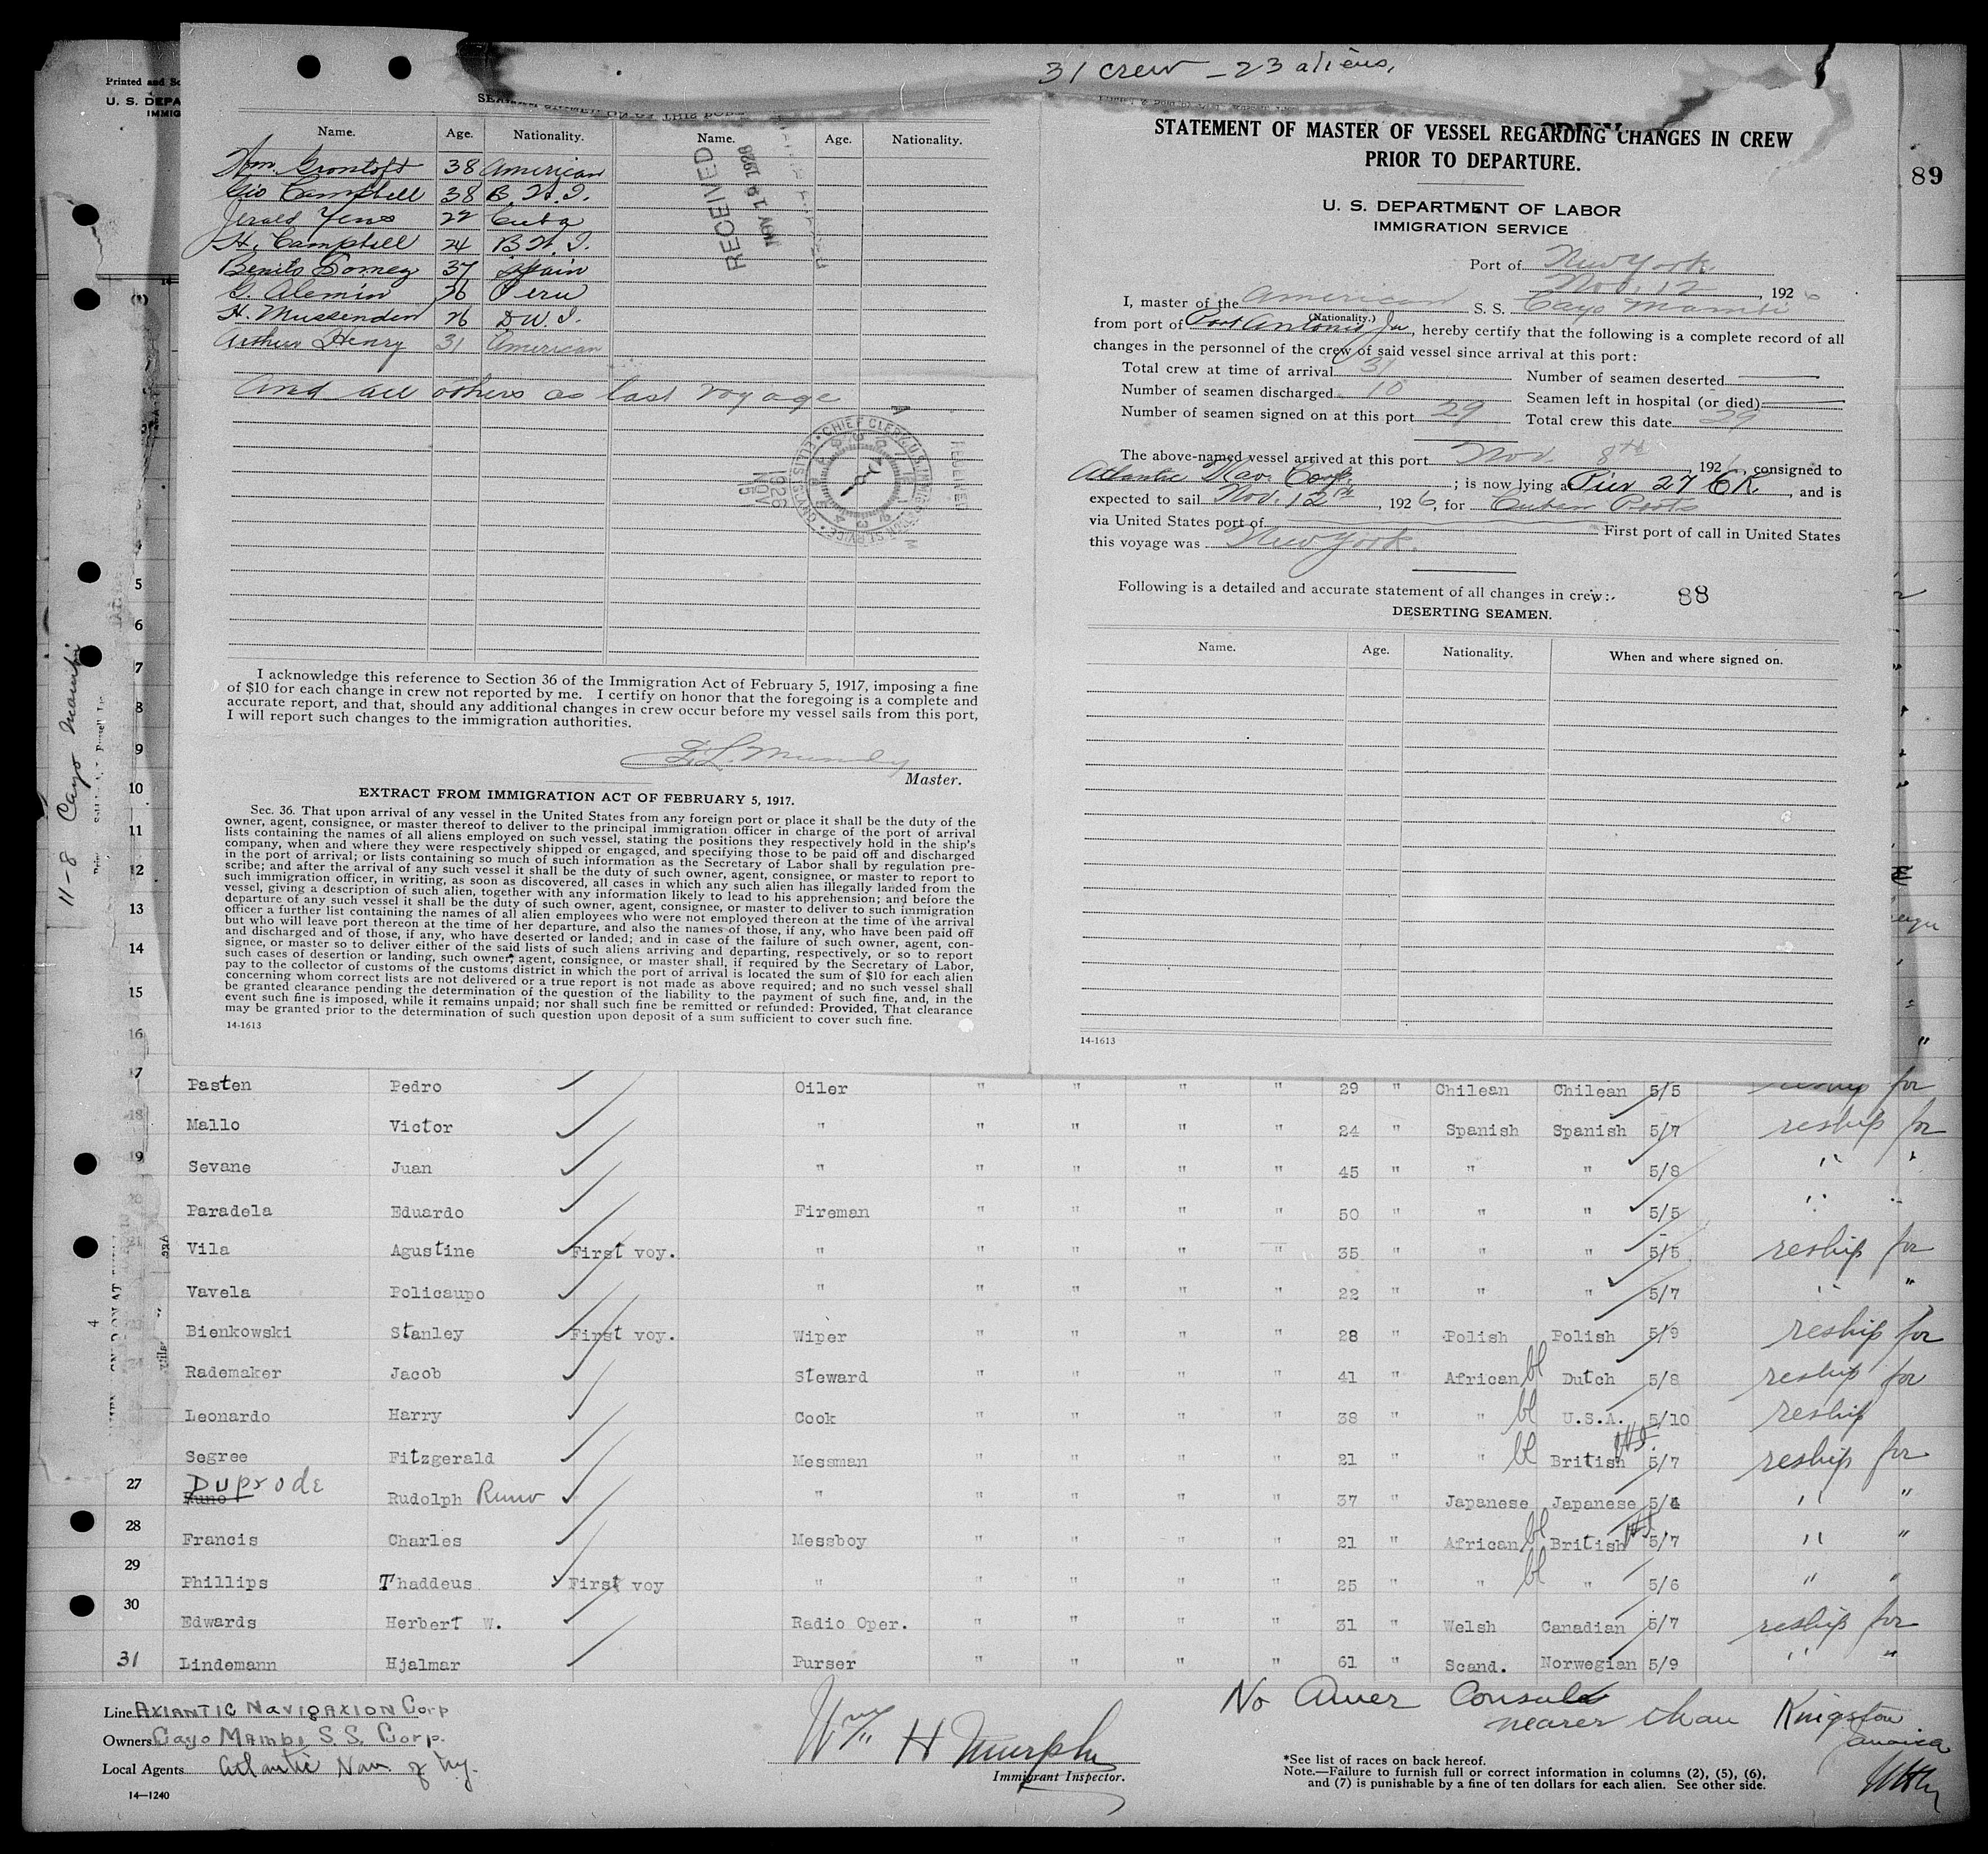 31 crew - 23 aliens,
Name. Age. Nationality. Name. Age. Nationality.
Wm. Grontoft 38 American
Geo Campbell 38 B. W. I.
Jerald Yens 22 Cuba
H. Campbell 24 B W. I.
Benito Gomez 37 Spain
G. Alemin 36 Peru
H. Mussenden 26 D W. I.
Arthur Henry 31 American
And all others as last voyage
RECEIVED
NOV 1926
I acknowledge this reference to Section 36 of the Immigration Act of February 5, 1917, imposing a fine
of $10 for each change in crew not reported by me. I certify on honor that the foregoing is a complete and
accurate report, and that, should any additional changes in crew occur before my vessel sails from this port,
I will report such changes to the immigration authorities.
G. L. Munday
Master.
EXTRACT FROM IMMIGRATION ACT OF FEBRUARY 5, 1917.
Sec. 36. That upon arrival of any vessel in the United States from any foreign port or place it shall be the duty of the
owner, agent, consignee, or master thereof to deliver to the principal immigration officer in charge of the port of arrival
lists containing the names of all aliens employed on such vessel, stating the positions they respectively hold in the ship's
company, when and where they were respectively shipped or engaged, and specifying those to be paid off and discharged
in the port of arrival; or lists containing so much of such information as the Secretary of Labor shall by regulation pre-
scribe; and after the arrival of any such vessel it shall be the duty of such owner, agent, consignee, or master to report to
such immigration officer, in writing, as soon as discovered, all cases in which any such alien has illegally landed from the
vessel, giving a description of such alien, together with any information likely to lead to his apprehension; and before the
departure of any such vessel it shall be the duty of such owner, agent, consignee, or master to deliver to such immigration
officer a further list containing the names of all alien employees who were not employed thereon at the time of the arrival
but who will leave port thereon at the time of her departure, and also the names of those, if any, who have been paid off
and discharged and of those, if any, who have deserted or landed; and in case of the failure of such owner, agent, con-
signee, or master so to deliver either of the said lists of such aliens arriving and departing, respectively, or so to report
such cases of desertion or landing, such owner, agent, consignee, or master shall, if required by the Secretary of Labor,
pay to the collector of customs of the customs district in which the port of arrival is located the sum of $10 for each alien
concerning whom correct lists are not delivered or a true report is not made as above required; and no such vessel shall
be granted clearance pending the determination of the question of the liability to the payment of such fine, and, in the
event such fine is imposed, while it remains unpaid; nor shall such fine be remitted or refunded: Provided, That clearance
may be granted prior to the determination of such question upon deposit of a sum sufficient to cover such fine.
14-1613
STATEMENT OF MASTER OF VESSEL REGARDING CHANGES IN CREW
PRIOR TO DEPARTURE.
89
U. S. DEPARTMENT OF LABOR
IMMIGRATION SERVICE
Port of New York.
Nov. 12, 1926
I, master of the American S. S. Cayo Mambi
(Nationality.)
from port of Port Antonio Ja, hereby certify that the following is a complete record of all
changes in the personnel of the crew of said vessel since arrival at this port:
Total crew at time of arrival 31 Number of seamen deserted
Number of seamen discharged 10 Seamen left in hospital (or died)
Number of seamen signed on at this port 29 Total crew this date 29
The above-named vessel arrived at this port Nov. 8th, 192 , consigned to
Atlantic Nav. Corp. ; is now lying at Pier 27 E R. , and is
expected to sail Nov. 12th, 1926, for Cuban Ports
via United States port of First port of call in United States
this voyage was New York.
Following is a detailed and accurate statement of all changes in crew:
88
DESERTING SEAMEN.
Name. Age. Nationality. When and where signed on.
14-1613
11-8 Cayo Mambi
17 Pasten Pedro Oiler " " " " 29 " Chilean Chilean 5/5 reship for
18 Mallo Victor " " " " " 24 " Spanish Spanish 5/7 reship for
19 Sevane Juan " " " " " 45 " " " 5/8 " "
20 Paradela Eduardo Fireman " " " " 50 " " " 5/5 " "
21 Vila Agustine First voy. " " " " " 35 " " " 5/5 reship for
Vavela Policaupo " " " " " 22 " " " 5/7 " "
Bienkowski Stanley First voy. Wiper " " " " 28 " Polish Polish 5/9 reship for
Rademaker Jacob Steward " " " " 41 " African bl Dutch 5/8 reship for
Leonardo Harry Cook " " " " 38 " " bl U.S.A. 5/10 reship
Segree Fitzgerald Messman " " " " 21 " " bl British WI. 5/7 reship for
27 Duprode Runo Rudolph Runo " " " " " 37 " Japanese Japanese 5/4 " "
28 Francis Charles Messboy " " " " 21 " African bl British WI 5/7 " "
29 Phillips Thaddeus First voy " " " " " 25 " " bl " 5/6 " "
30 Edwards Herbert W. Radio Oper. " " " " 31 " Welsh Canadian 5/7 reship for
31 Lindemann Hjalmar Purser " " " " 61 " Scand. Norwegian 5/9 " "
Line Atlantic Navigation Corp
Owners Cayo Mambi S. S. Corp.
Local Agents Atlantic Nav. of Ny.
14—1240
Wm H Murphy
Immigrant Inspector.
No Amer Consul
nearer than Kingston
Jamaica
*See list of races on back hereof.
Note.—Failure to furnish full or correct information in columns (2), (5), (6),
and (7) is punishable by a fine of ten dollars for each alien. See other side.